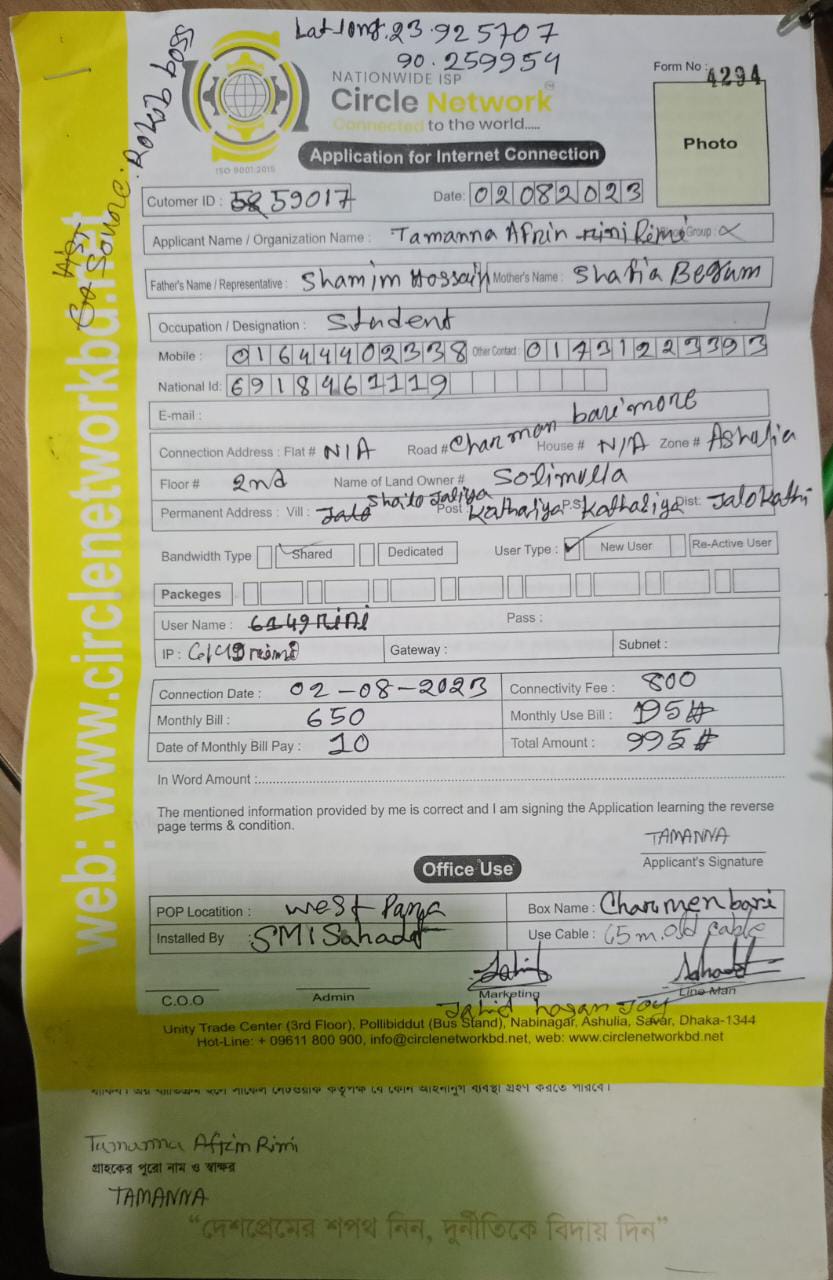 Lat-long: 23.925707
90.259954
NATIONWIDE ISP
Circle Network
Connected to the world.....
ISO 9001:2015
Form No : 4294
Photo
Application for Internet Connection
web: www.circlenetworkbd.net
Cutomer ID : 59017 Date: 02082023
Applicant Name / Organization Name : Tamanna Afrin Rimi Group :
Father's Name / Representative : Shamim Hossain Mother's Name : Shafia Begum
Occupation / Designation : Student
Mobile : 01644402338 Other Contact : 01731223393
National Id: 6918461119
E-mail :
Connection Address : Flat # N/A Road # Charman bari more House # N/A Zone # Ashulia
Floor # 2nd Name of Land Owner # Solimulla
Permanent Address : Vill : Post : Kathaliya P.S Kathaliya Dist: Jalokathi
Bandwidth Type Shared Dedicated User Type : ✓ New User Re-Active User
Packeges
User Name : 6149 Rimi Pass :
IP : 6149 rimi Gateway : Subnet :
Connection Date : 02-08-2023 Connectivity Fee : 800
Monthly Bill : 650 Monthly Use Bill : 195#
Date of Monthly Bill Pay : 10 Total Amount : 995#
In Word Amount :
The mentioned information provided by me is correct and I am signing the Application learning the reverse
page terms & condition.
TAMANNA
Applicant's Signature
Office Use
POP Locatition : West Para Box Name : Charmen bari
Installed By SMI Sahadat Use Cable : 65 m. old cable
C.O.O Admin Marketing Line Man
Jahid hasan Joy
Unity Trade Center (3rd Floor), Pollibiddut (Bus Stand), Nabinagar, Ashulia, Savar, Dhaka-1344
Hot-Line: + 09611 800 900, info@circlenetworkbd.net, web: www.circlenetworkbd.net
Tamanna Afrin Rimi
গ্রাহকের পুরো নাম ও স্বাক্ষর
TAMANNA
“দেশপ্রেমের শপথ নিন, দুর্নীতিকে বিদায় দিন”